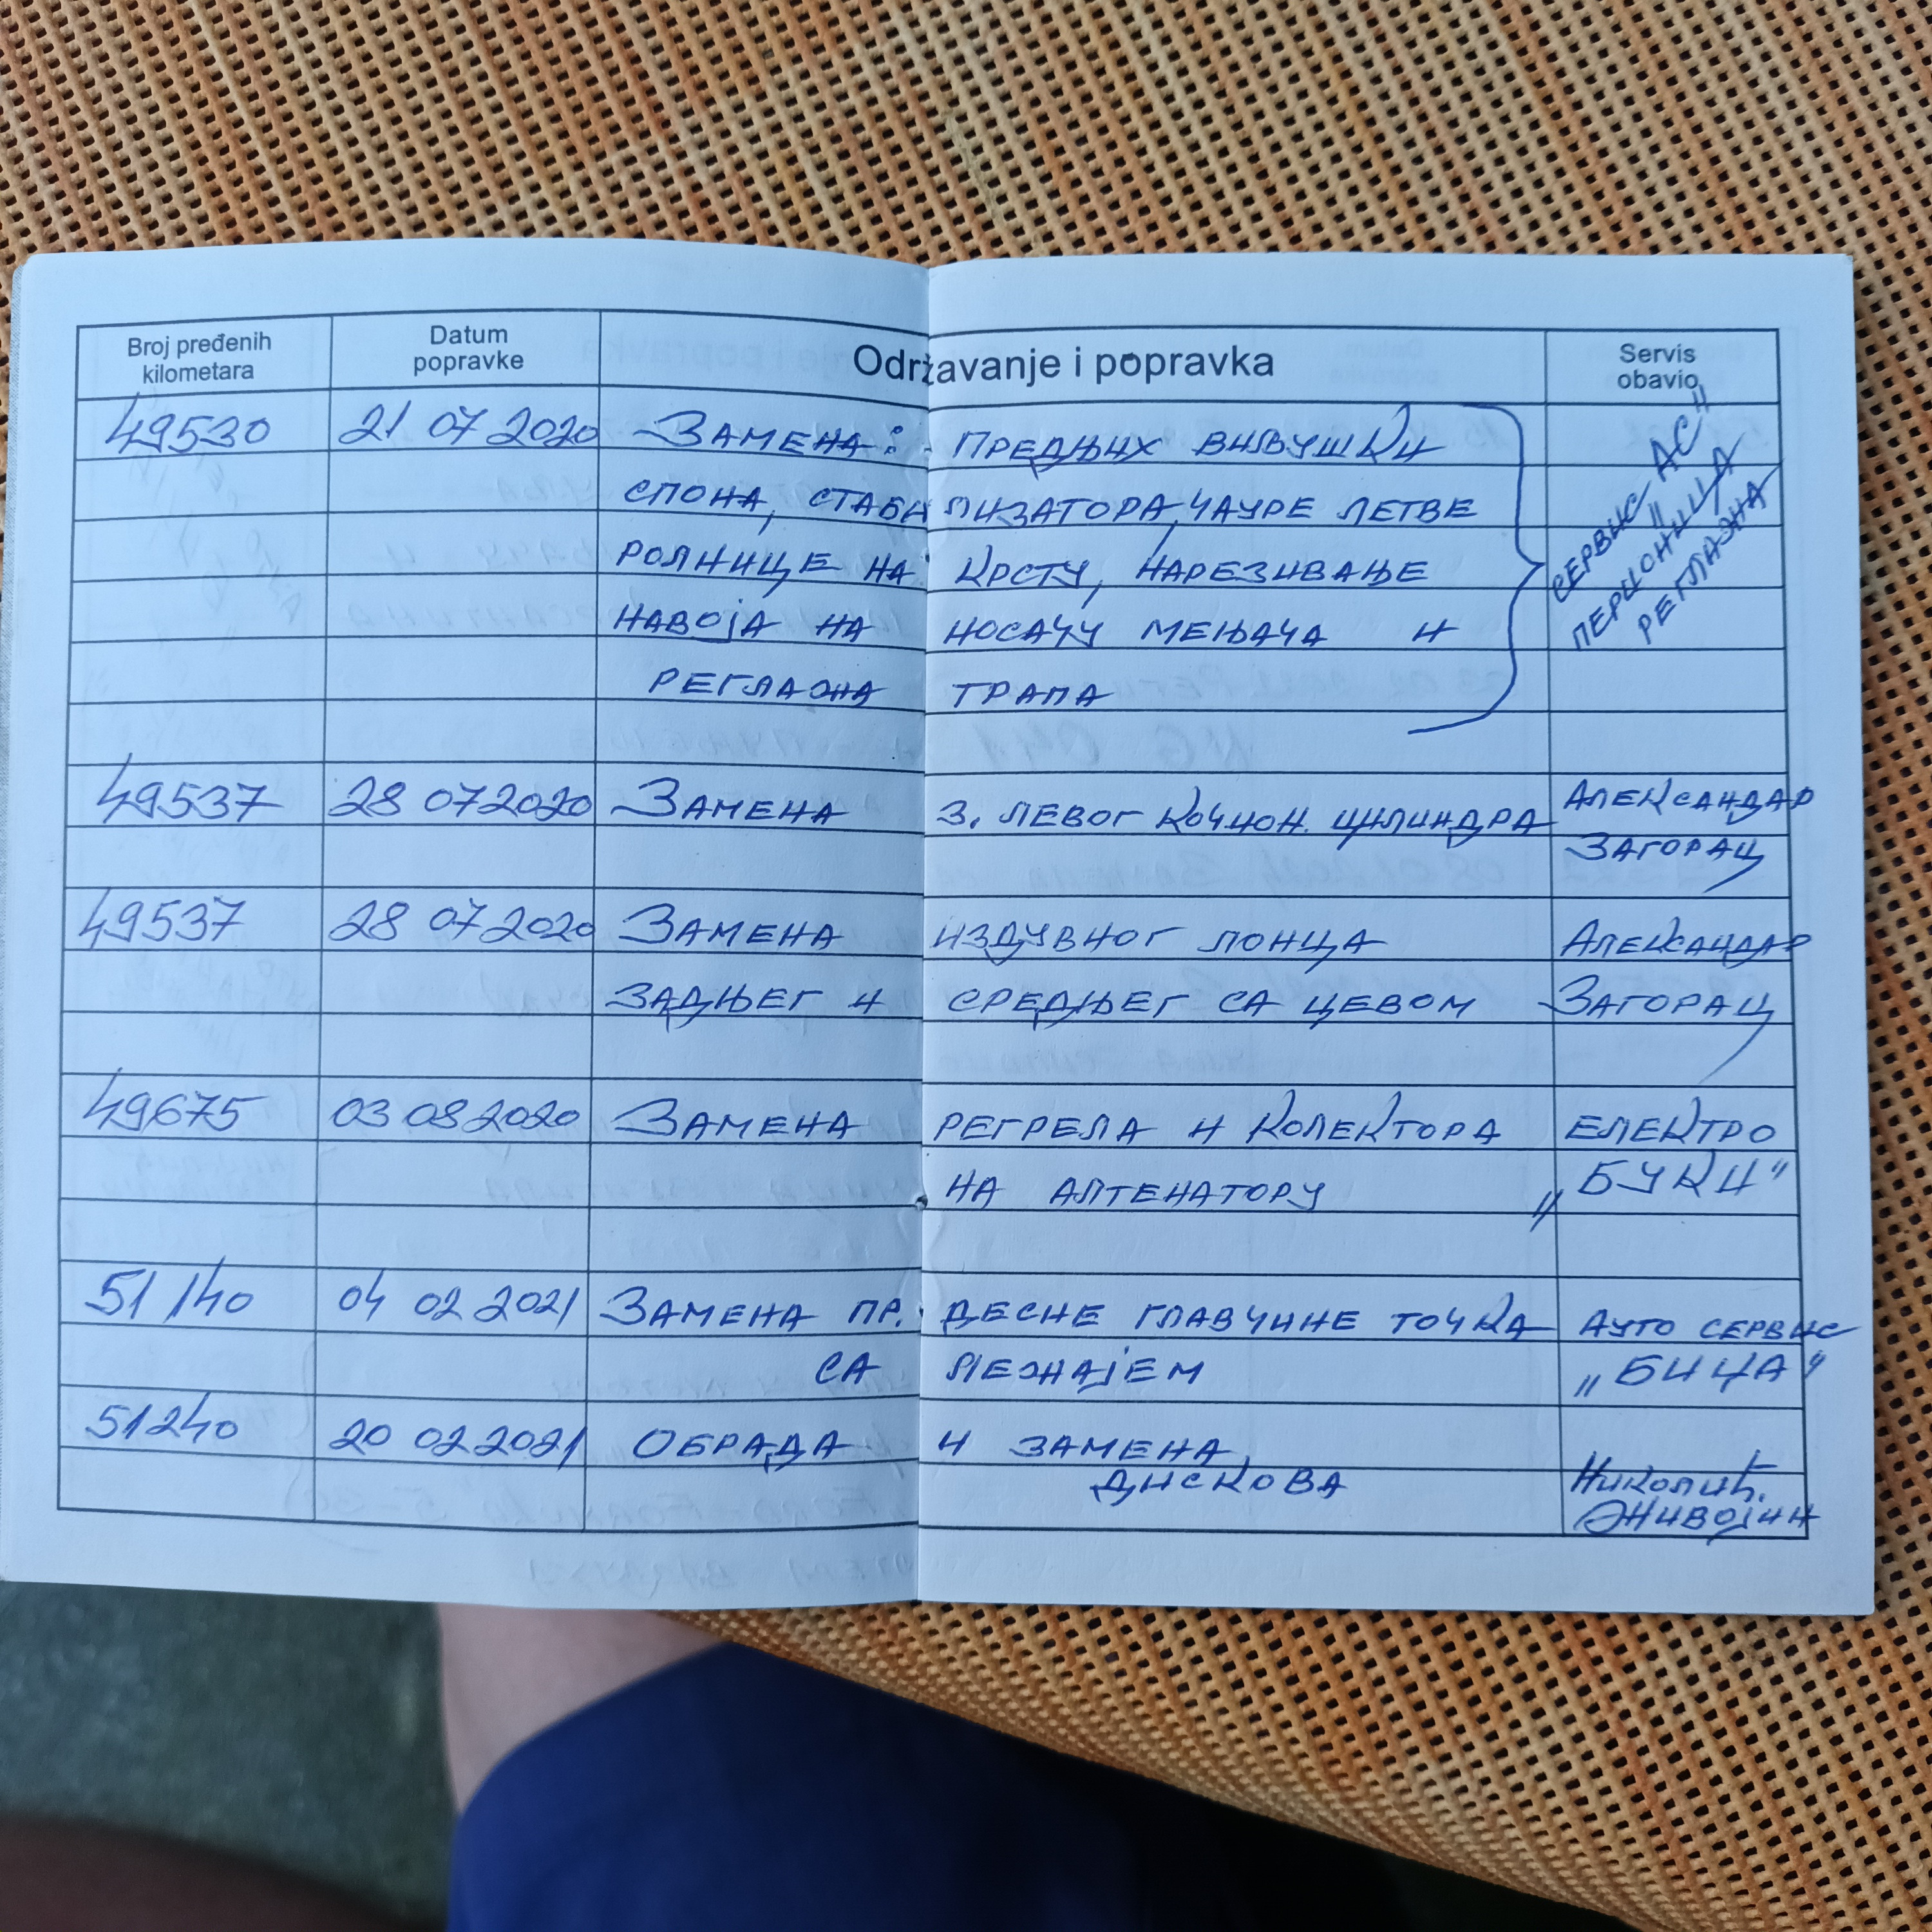 Broj pređenih kilometara Datum popravke Održavanje i popravka Servis obavio
49530 21 07 2020 ЗАМЕНА: ПРЕДЊИХ ВИВУШКИ
СПОНА, СТАБИЛИЗАТОРА, ЧАУРЕ ЛЕТВЕ
РОЛНИЦЕ НА КРСТУ, НАРЕЗИВАЊЕ
НАВОЈА НА НОСАЧУ МЕЊАЧА И
РЕГЛАЖА ТРАПА
СЕРВИС "АС"
ПЕРИОНИЦА
РЕГЛАЖА
49537 28 07 2020 ЗАМЕНА З. ЛЕВОГ КОЧИОН. ЦИЛИНДРА АЛЕКСАНДАР
ЗАГОРАЦ
49537 28 07 2020 ЗАМЕНА ИЗДУВНОГ ЛОНЦА АЛЕКСАНДАР
ЗАДЊЕГ И СРЕДЊЕГ СА ЦЕВОМ ЗАГОРАЦ
49675 03 08 2020 ЗАМЕНА РЕГРЕЛА И КОЛЕКТОРА ЕЛЕКТРО
НА АЛТЕНАТОРУ „БУКИ"
51140 04 02 2021 ЗАМЕНА ПР. ДЕСНЕ ГЛАВЧИНЕ ТОЧКА АУТО СЕРВИС
СА ЛЕЖАЈЕМ „БИЦА"
51240 20 02 2021 ОБРАДА И ЗАМЕНА
ДИСКОВА НИКОЛИЋ
ЖИВОЈИН